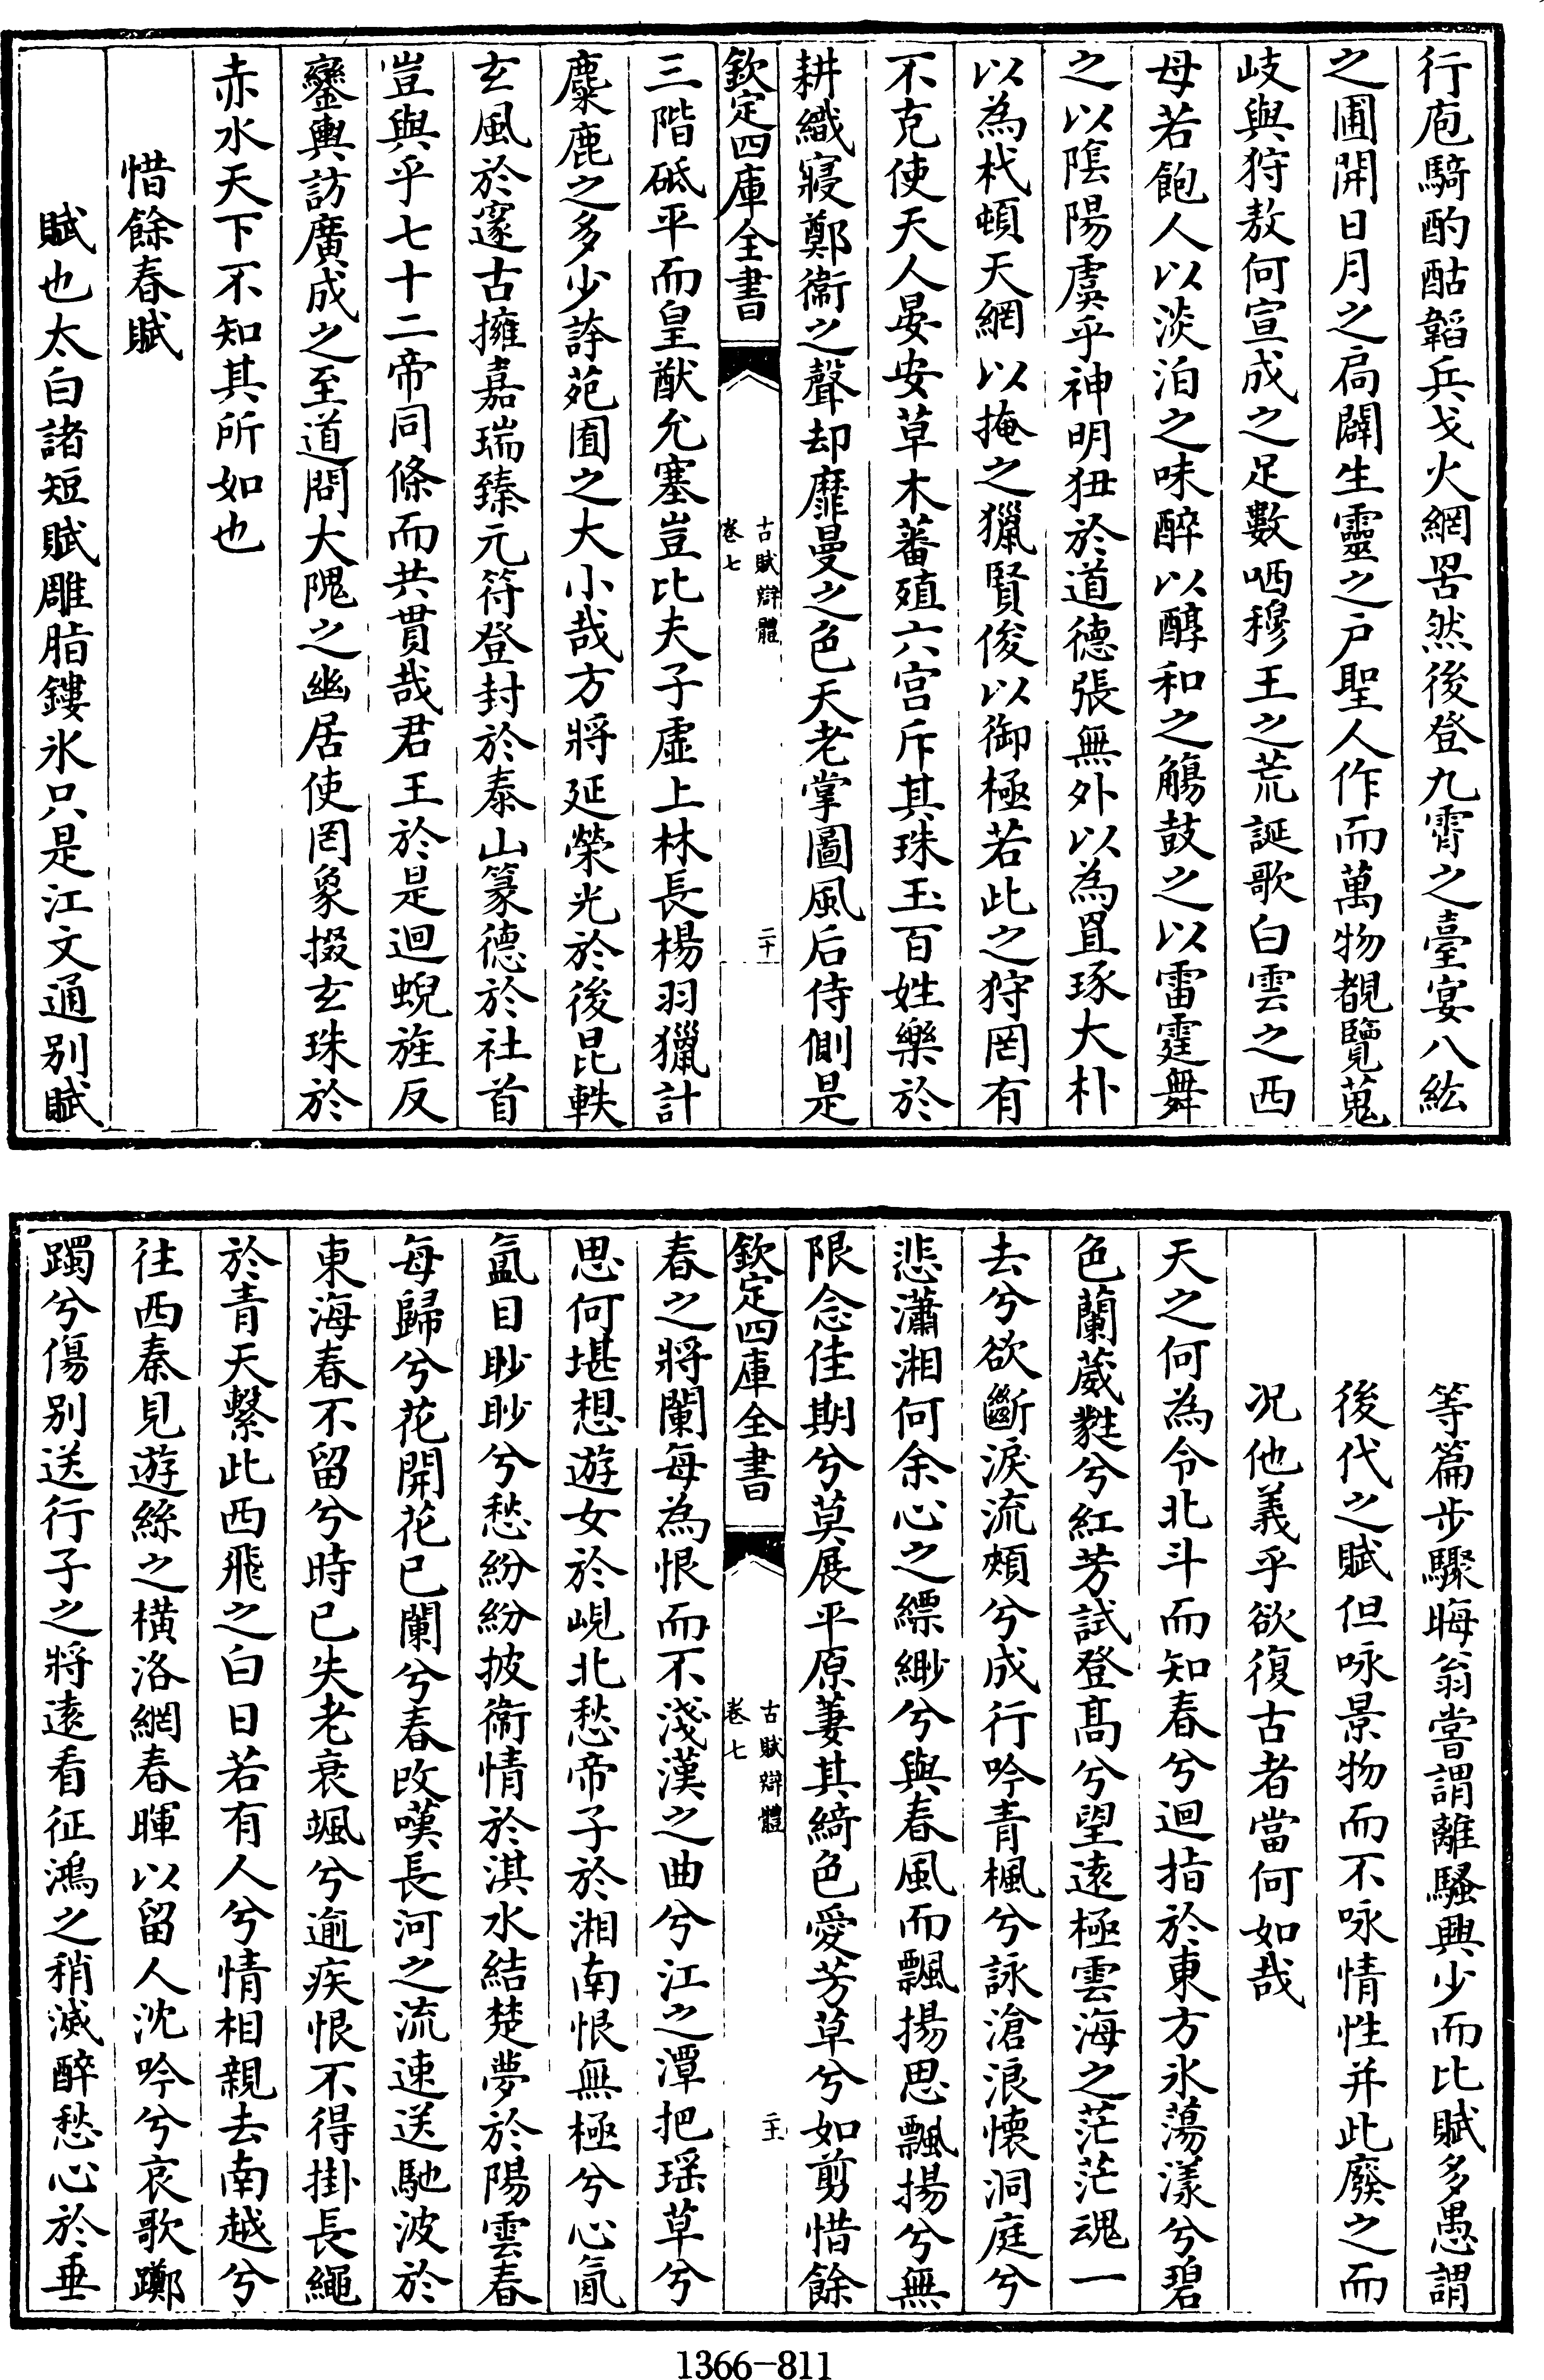 行庖騎酌酤韜兵戈火網罟然後登九霄之臺宴八紘
之圃開日月之扃闢生靈之戶聖人作而萬物覩覽蒐
岐與狩敖何宣成之足數哂穆王之荒誕歌白雲之西
母若飽人以淡泊之味醉以醇和之觴鼓之以雷霆舞
之以陰陽虞乎神明狃於道德張無外以為罝琢大朴
以為杙頓天網以掩之獵賢俊以御極若此之狩罔有
不克使天人晏安草木蕃殖六宮斥其珠玉百姓樂於
耕織寢鄭衞之聲却靡曼之色天老掌圖風后侍側是
欽定四庫全書
古賦辯體
卷七
二十
三階砥平而皇猷允塞豈比夫子虛上林長楊羽獵計
麋鹿之多少誇苑囿之大小哉方將延榮光於後昆軼
玄風於邃古擁嘉瑞臻元符登封於泰山篆德於社首
豈與乎七十二帝同條而共貫哉君王於是迴蜺旌反
鑾輿訪廣成之至道問大隗之幽居使罔象掇玄珠於
赤水天下不知其所如也
惜餘春賦
賦也太白諸短賦雕脂鏤氷只是江文通别賦
等篇步驟晦翁嘗謂離騷興少而比賦多愚謂
後代之賦但咏景物而不咏情性并此廢之而
况他義乎欲復古者當何如哉
天之何為令北斗而知春兮迴指於東方氷蕩漾兮碧
色蘭葳蕤兮紅芳試登髙兮望遠極雲海之茫茫魂一
去兮欲斷淚流頰兮成行吟青楓兮詠滄浪懷洞庭兮
悲瀟湘何余心之縹緲兮與春風而飄揚思飄揚兮無
限念佳期兮莫展平原萋其綺色愛芳草兮如剪惜餘
欽定四庫全書
古賦辯體
卷七
二十一
春之將闌每為恨而不淺漢之曲兮江之潭把瑶草兮
思何堪想遊女於峴北愁帝子於湘南恨無極兮心氤
氳目眇眇兮愁紛紛披衞情於淇水結楚夢於陽雲春
每歸兮花開花已闌兮春改嘆長河之流速送馳波於
東海春不留兮時已失老衰颯兮逾疾恨不得掛長繩
於青天繫此西飛之白日若有人兮情相親去南越兮
往西秦見遊絲之橫洛網春暉以留人沈吟兮哀歌躑
躅兮傷别送行子之將逺看征鴻之稍滅醉愁心於垂
1366-811